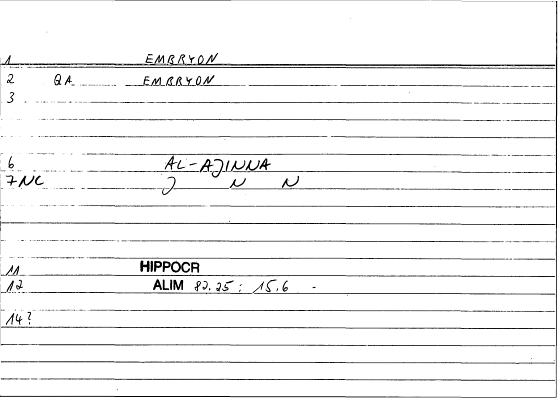 1 EMBRYON
2 QA EMBRYON
3
6 AL-AJINNA
7 NC J N N
11 HIPPOCR
12 ALIM 82.25 : 15.6 -
14?